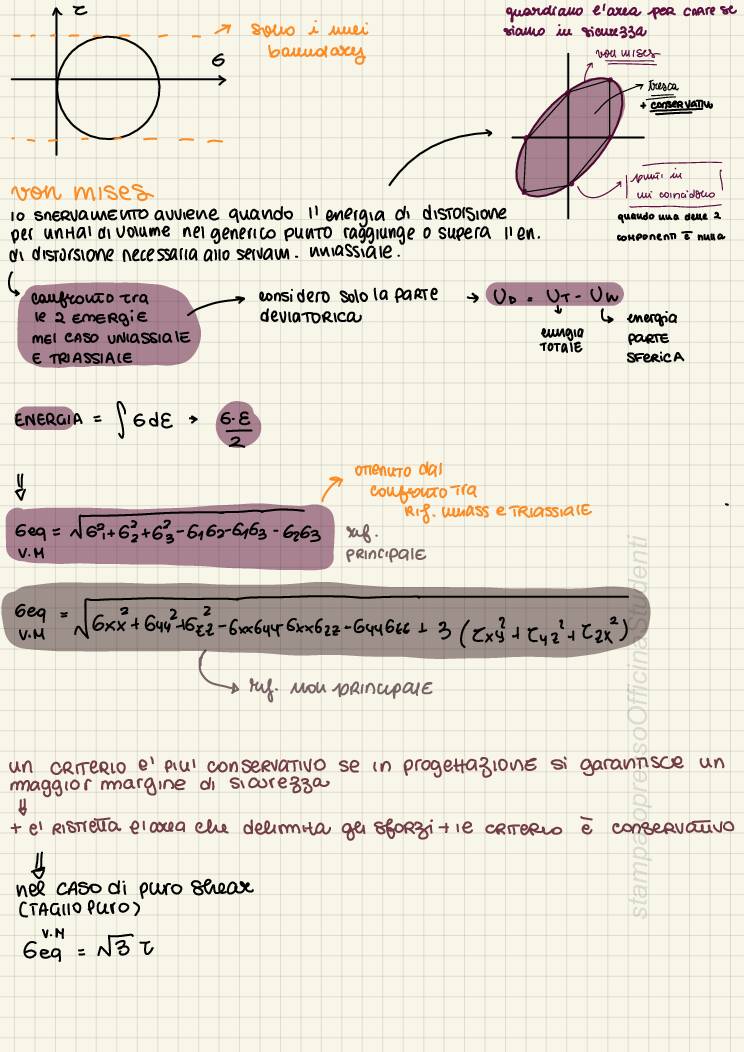 τ
σ
sono i miei
boundary
guardiamo l'area per capire se
siamo in sicurezza
von mises
tresca
+ conservativo
punti in
cui coincidono
quando una delle 2
componenti è nulla
von mises
lo snervamento avviene quando l'energia di distorsione
per unità di volume nel generico punto raggiunge o supera l'en.
di distorsione necessaria allo servam. uniassiale.
confronto tra
le 2 energie
nel caso uniassiale
e triassiale
considero solo la parte
deviatorica
→ U_D = U_T - U_W
energia
totale
energia
parte
sferica
ENERGIA = ∫ σ dε → σ·ε/2
⇓
σeq V.M = √σ₁²+σ₂²+σ₃²-σ₁σ₂-σ₁σ₃-σ₂σ₃
ottenuto dal
confronto tra
rif. uniass e triassiale
rif.
principale
σeq V.M = √σxx²+σyy²+σzz²-σxxσyy-σxxσzz-σyyσzz+3(τxy²+τyz²+τzx²)
rif. non principale
un criterio e' piu' conservativo se in progettazione si garantisce un
maggior margine di sicurezza
⇓
+ e' ristretta l'area che delimita gli sforzi + il criterio è conservativo
⇓
nel caso di puro shear
(taglio puro)
σeq V.M = √3 τ
stampato presso OfficinaStudenti